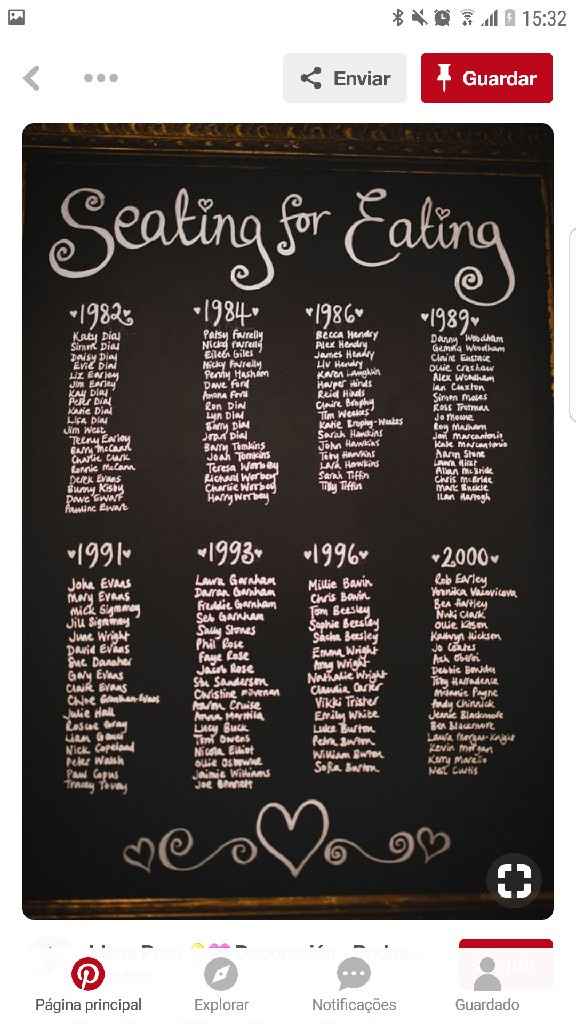 15:32
Enviar
Guardar
Seating for Eating
1982
Katy Dial
Simon Dial
Daisy Dial
Evie Dial
Liz Earley
Jim Earley
Kay Dial
Peter Dial
Katie Dial
Lisa Dial
Jim West
Teeny Earley
Barry McCann
Charlie Clark
Ronnie McCann
Derek Evans
Bunny Kisby
Dave Ewart
Pauline Ewart
1984
Patsy Farrelly
Nicky Farrelly
Eileen Giles
Nicky Farrelly
Penny Hasham
Dave Ford
Ford
Ron Dial
Lyn Dial
Barry Dial
Joan Dial
Barry Tomkins
Joan Tomkins
Teresa Worboy
Richard Worboy
Charlie Worboy
Harry Worboy
1986
Becca Hendry
Alex Hendry
James Hendry
Liv Hendry
Karen Laughlin
Harper Hinds
Reid Hinds
Claire Brophy
Tim Weakes
Katie Brophy-Weakes
Sarah Hawkins
John Hawkins
Toby Hawkins
Lara Hawkins
Sarah Tiffin
Tilly Tiffin
1989
Danny Woodham
Gemma Woodham
Claire Eustace
Ollie Crashaw
Alex Woodham
Ian Claxton
Simon Moses
Ross Trotman
Jo Moore
Roy Masham
Jon Marcantonio
Kate Marcantonio
Aaron Stone
Laura Hirst
Allan McBride
Chris McBride
Marc Buckle
Ilan Hertogh
1991
John Evans
Mary Evans
Mick Sigmmoy
Jill Sigmmoy
June Wright
David Evans
Sue Danaher
Gary Evans
Claire Evans
Chloe Grantham-Evans
Julie Hall
Roscoe Gray
Liam Gower
Nick Copeland
Peter Walsh
Paul Copus
Tracey Tovey
1993
Laura Garnham
Darran Garnham
Freddie Garnham
Seb Garnham
Sally Stones
Phil Rose
Faye Rose
Jacob Rose
Stu Sanderson
Christine
Aaron Cruise
Anna
Lucy Buck
Toni Owens
Nicola Elliot
Ollie Osbourne
Jaimie Williams
Joe Bennett
1996
Millie Bavin
Chris Bavin
Tom Beesley
Sophie Beesley
Sasha Beesley
Emma Wright
Amy Wright
Nathalie Wright
Claudia Carter
Vikki Trister
Emily White
Luke Burton
Petra Burton
William Burton
Sofia Burton
2000
Rob Earley
Veronika Vaiovicova
Ben Hartley
Nicki Clark
Ollie Kitson
Kathryn Hickson
Jo Coates
Ash Oberoi
Debbie Boulder
Toby Harradence
Melanie Payne
Andy Chinnick
Jennie Blackmore
Ben Blackmore
Laura Morgan-Knight
Kevin Morgan
Kerry Marello
Neil Curtis
Página principal
Explorar
Notificações
Guardado